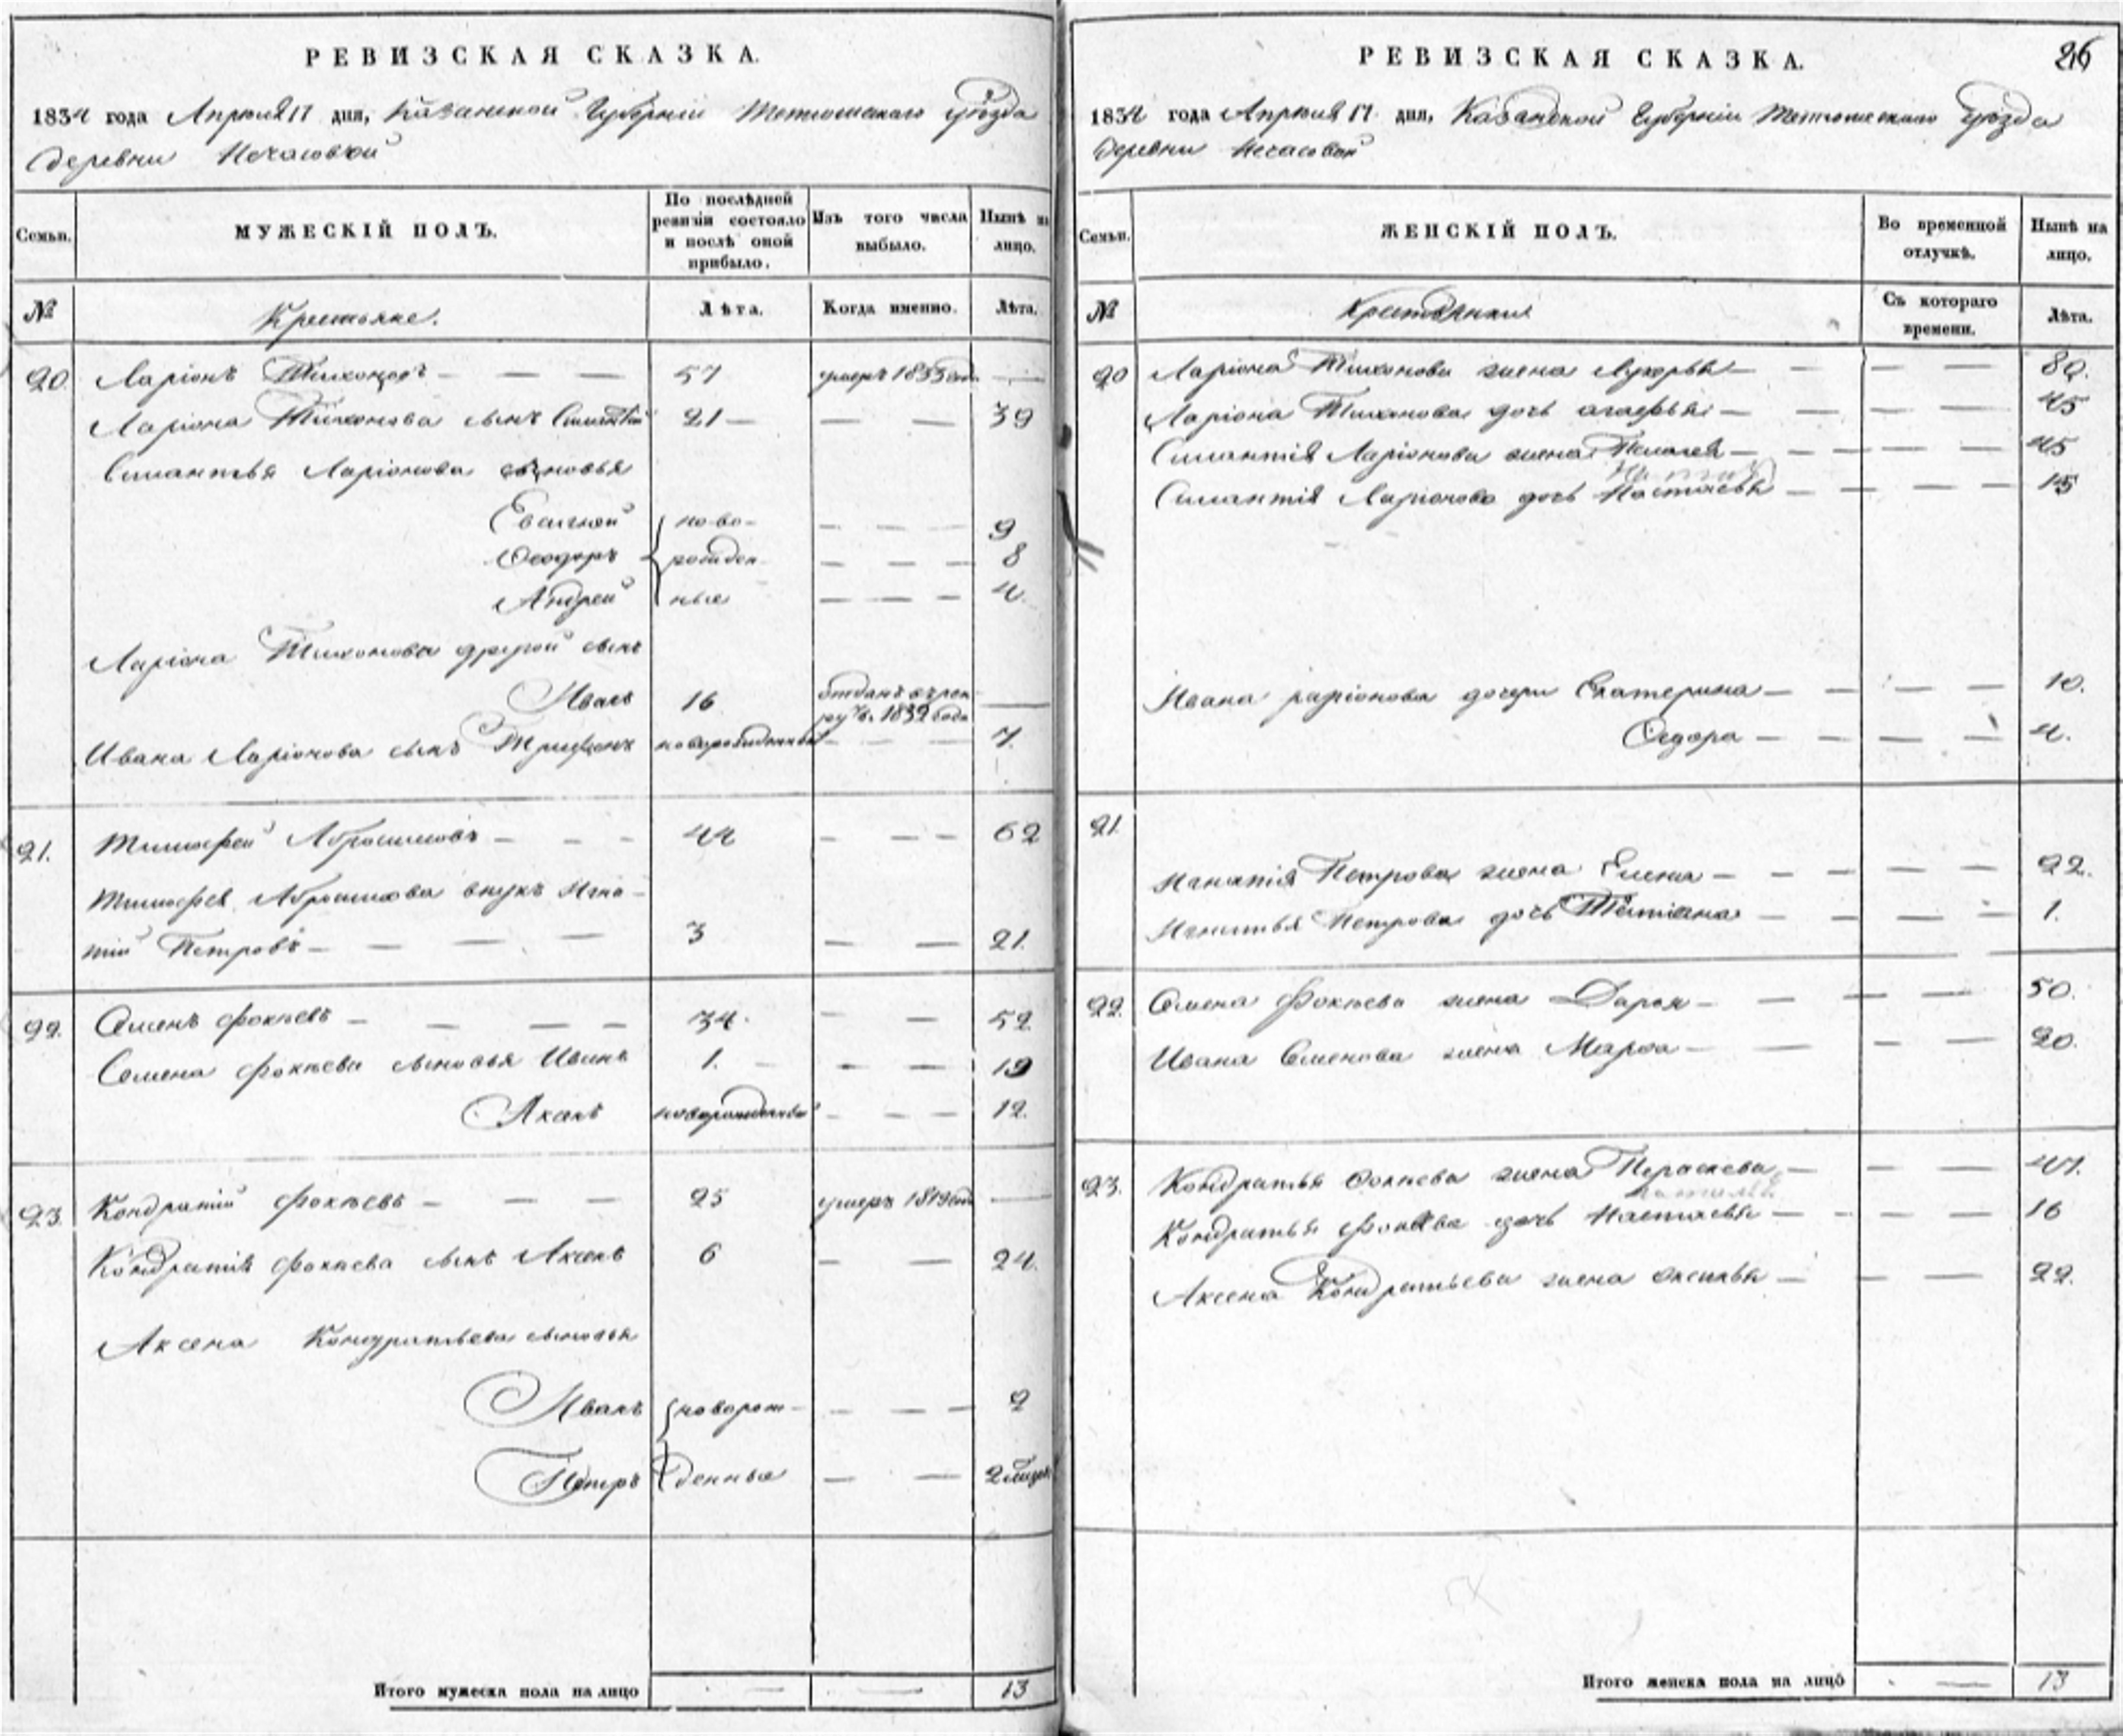 РЕВИЗСКАЯ СКАЗКА.
1834 года Апреля 17 дня, Казанской Губернии Тетюшскаго уезда
деревни Нечасовой
Семьи.
МУЖЕСКІЙ ПОЛЪ.
По послѣдней ревизіи состояло и послѣ оной прибыло.
Изъ того числа выбыло.
Нынѣ на лицо.
№
Крестьяне.
Лѣта.
Когда именно.
Лѣта.
20. Ларіонъ Тихоновъ — — — 57 умеръ 1833 года —
Ларіона Тихонова сынъ 21 — — — 39
Ларіонова сыновья
ново-
— — — 9
Ѳеодоръ рожден — — — 8
Андрей ные — — — 4.
Ларіона Тихонова другой сынъ
Иванъ 16 отданъ въ рек
руты 1832 года —
Ивана Ларіонова сынъ Трифонъ новорожденный — — 7.
21. Тимофей Абросимовъ — — — 44 — — — 62
Тимофея Абросимова внукъ Игна-
тій Петровъ — — — 3 — — 21.
22. Семенъ Фокѣевъ — — — — 34. — — 52
Семена Фокѣева сыновья Иванъ 1. — — — — 19
Аксенъ новорожденный — — — 12.
23. Кондратій Фокѣевъ — — — 25 умеръ 1819 года —
Кондратія Фокѣева сынъ Аксенъ 6 — — 24.
Аксена Кондратьева сыновья
Иванъ новорож- — — — 2
Петръ денные — — 2 месяцовъ
Итого мужеска пола на лицо — — 13
РЕВИЗСКАЯ СКАЗКА. 26
1834 года Апреля 17 дня, Казанской Губерніи Тетюшскаго Уезда
деревни Нечасовой
Семьи.
ЖЕНСКІЙ ПОЛЪ.
Во временной отлучкѣ.
Нынѣ на лицо.
№
Крестьянки
Съ котораго времени.
Лѣта.
20 Ларіона Тихонова жена Лукерья — — — — 80.
Ларіона Тихонова дочь Агафья — — — — 45
Ларіонова жена Пелагея — — — — 45
Ларіонова дочь Настасья — — — — 15
Ивана Ларіонова дочери Екатерина — — — — 10.
Ѳедора — — — — 4.
21.
Игнатія Петрова жена Елена — — — — — 22.
Игнатья Петрова дочь Татіана — — — — 1.
22. Семена Фокѣева жена Дарья — — — — 50.
Ивана Семенова жена Марѳа — — — — 20.
23. Кондратья Фокѣева жена Пераскева — — — 47.
Кондратья Фокѣева дочь Настасья — — — — 16
Аксена Кондратьева жена — — — 22.
Итого женска пола на лицо — 13